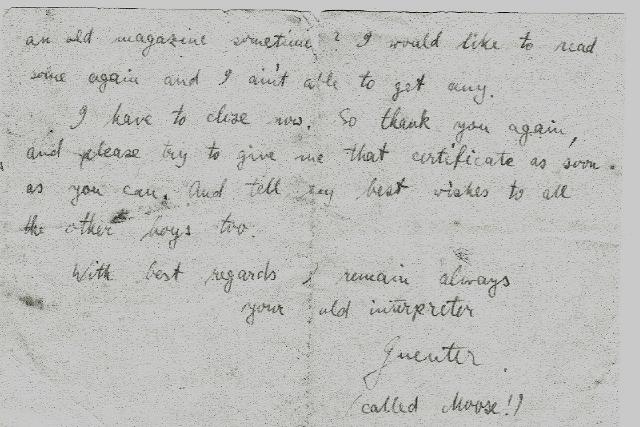 an old magazine sometime? I would like to read
some again and I ain't able to get any.
I have to close now. So thank you again,
and please try to give me that certificate as soon.
as you can. And tell my best wishes to all
the other boys too.
With best regards I remain always
your old interpreter
Guenter
(called Moose!)